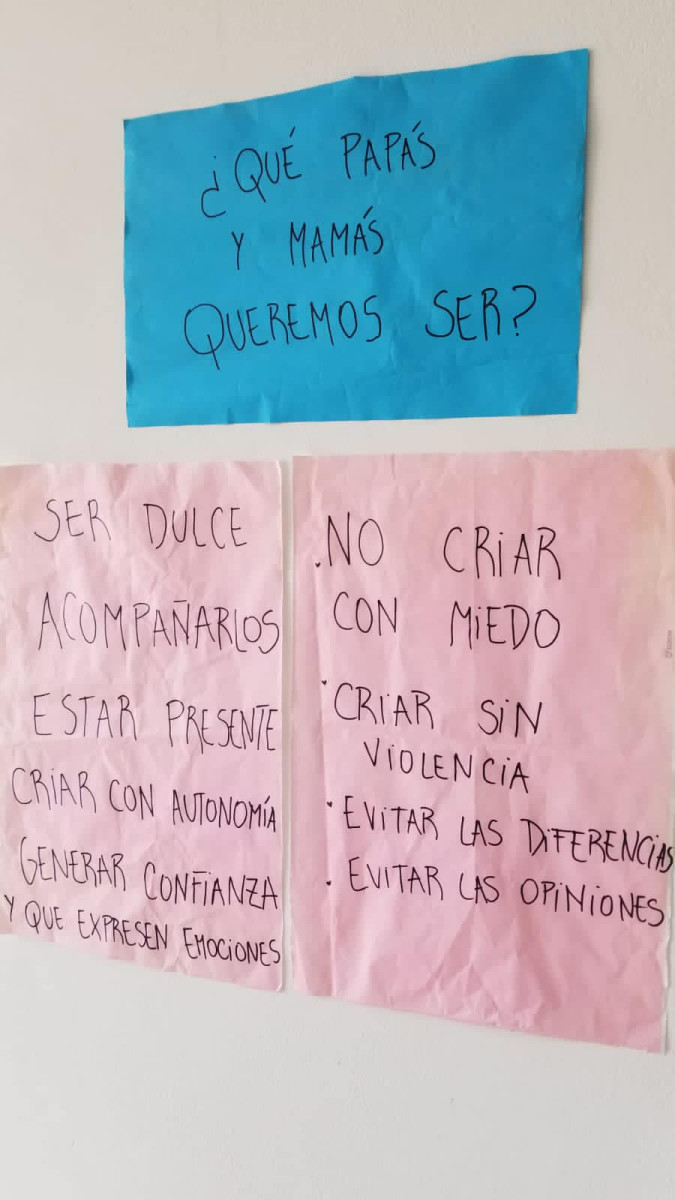 ¿QUÉ PAPÁS
Y MAMÁS
QUEREMOS SER?
SER DULCE
ACOMPAÑARLOS
ESTAR PRESENTE
CRIAR CON AUTONOMÍA
GENERAR CONFIANZA
Y QUE EXPRESEN EMOCIONES
.NO CRIAR
CON MIEDO
·CRIAR SIN
VIOLENCIA
·EVITAR LAS DIFERENCIAS
·EVITAR LAS OPINIONES